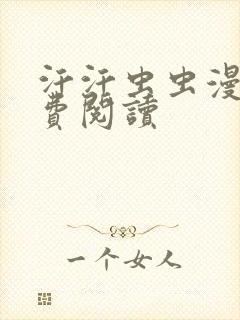 汗汗虫虫漫
費閱讀
一个女人